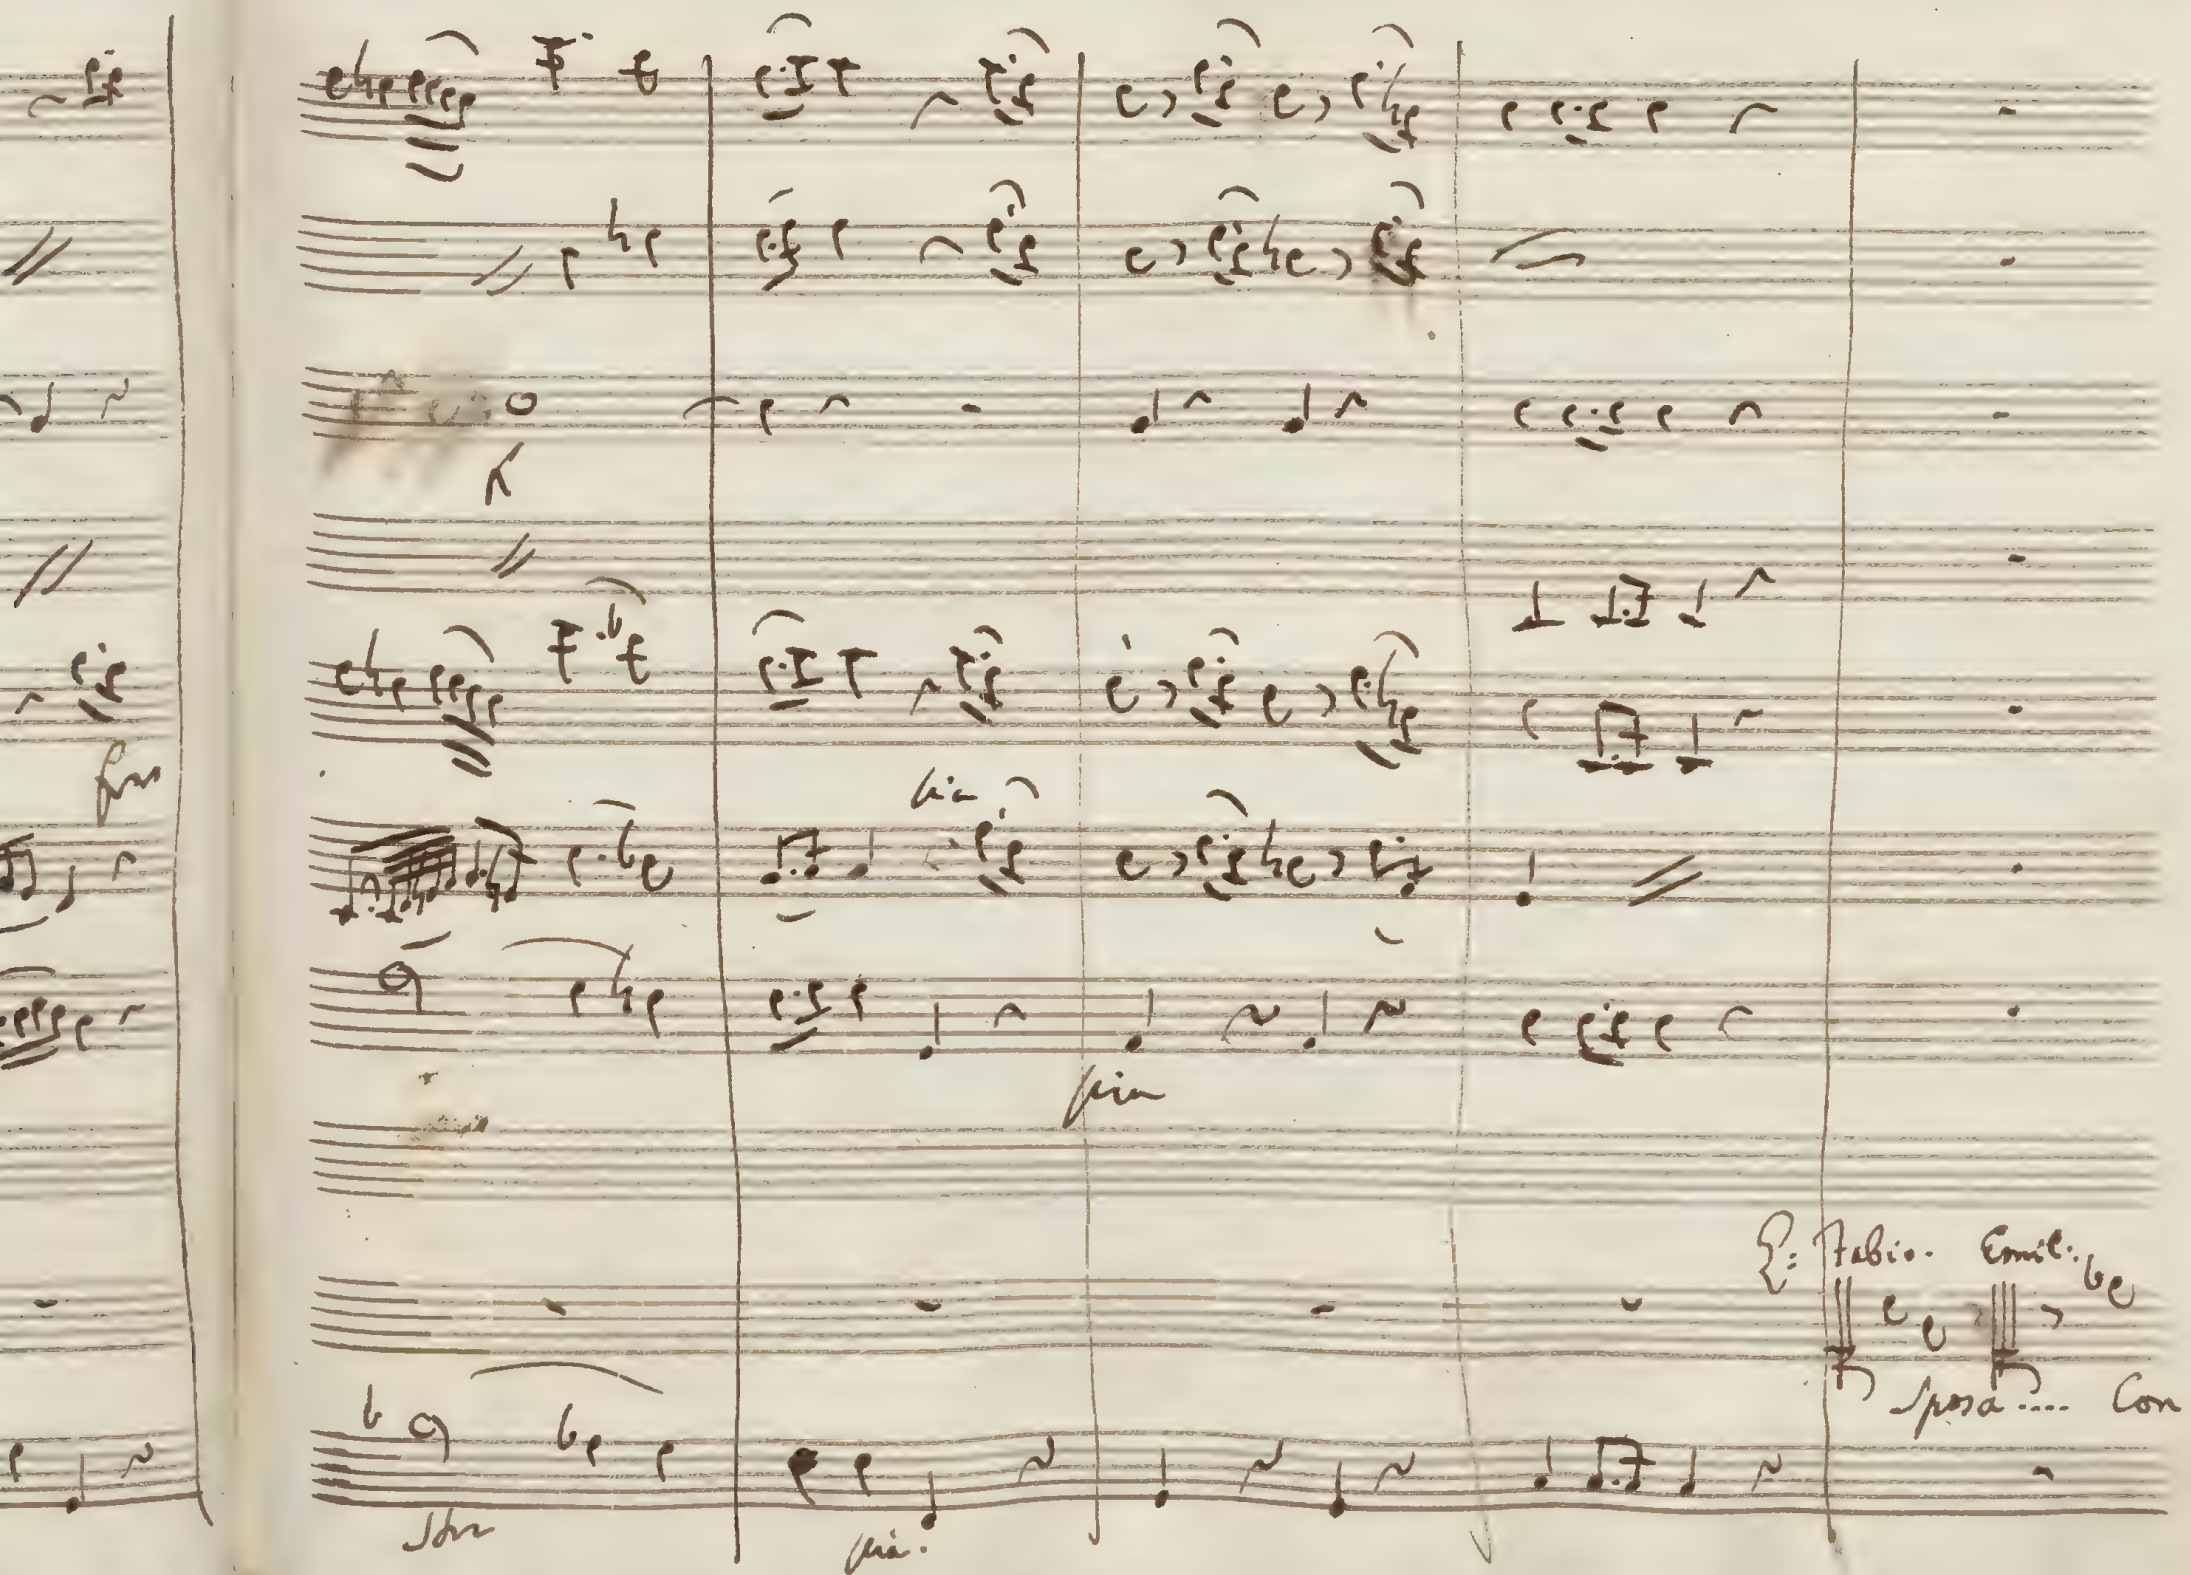 for
pia
pia
Q: Fabio. Emil:
Sposa.... Con
for
pia.